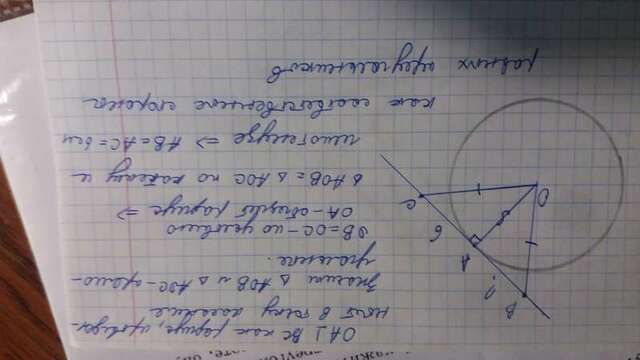 OA ⊥ BC как радиус, проведен-
ный в точку касания,
Значит △ AOB и △ AOC - прямо-
угольные.
OB = OC - по условию
OA - общий радиус =>
△ AOB = △ AOC по катету и
гипотенузе => AB = AC = 6 см
как соответственные стороны
равных треугольников
B ? A 6 C
O